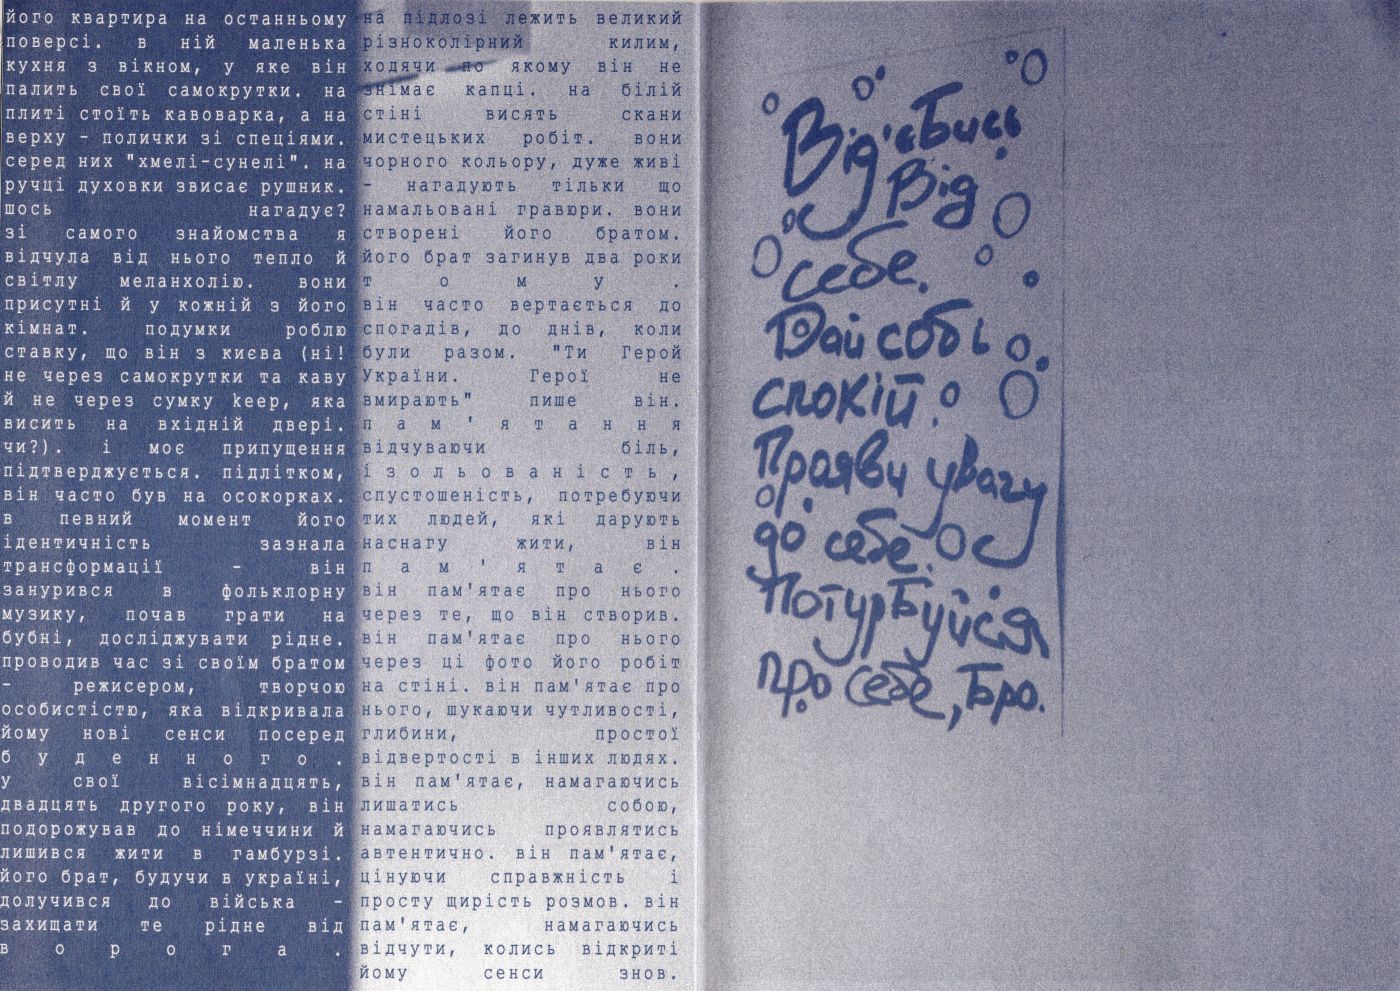 його квартира на останньому
поверсі. в ній маленька
кухня з вікном, у яке він
палить свої самокрутки. на
плиті стоїть кавоварка, а на
верху - полички зі спеціями.
серед них "хмелі-сунелі". на
ручці духовки звисає рушник.
шось нагадує?
зі самого знайомства я
відчула від нього тепло й
світлу меланхолію. вони
присутні й у кожній з його
кімнат. подумки роблю
ставку, що він з києва (ні!
не через самокрутки та каву
й не через сумку keep, яка
висить на вхідній двері.
чи?). і моє припущення
підтверджується. підлітком,
він часто був на осокорках.
в певний момент його
ідентичність зазнала
трансформації - він
занурився в фольклорну
музику, почав грати на
бубні, досліджувати рідне.
проводив час зі своїм братом
- режисером, творчою
особистістю, яка відкривала
йому нові сенси посеред
буденного.
у свої вісімнадцять,
двадцять другого року, він
подорожував до німеччини й
лишився жити в гамбурзі.
його брат, будучи в україні,
долучився до війська -
захищати те рідне від
ворога.
на підлозі лежить великий
різноколірний килим,
ходячи по якому він не
знімає капці. на білій
стіні висять скани
мистецьких робіт. вони
чорного кольору, дуже живі
- нагадують тільки що
намальовані гравюри. вони
створені його братом.
його брат загинув два роки
тому.
він часто вертається до
спогадів, до днів, коли
були разом. "Ти Герой
України. Герої не
вмирають" пише він.
пам'ятання
відчуваючи біль,
ізольованість,
спустошеність, потребуючи
тих людей, які дарують
наснагу жити, він
пам'ятає.
він пам'ятає про нього
через те, що він створив.
він пам'ятає про нього
через ці фото його робіт
на стіні. він пам'ятає про
нього, шукаючи чутливості,
глибини, простої
відвертості в інших людях.
він пам'ятає, намагаючись
лишатись собою,
намагаючись проявлятись
автентично. він пам'ятає,
цінуючи справжність і
просту щирість розмов. він
пам'ятає, намагаючись
відчути, колись відкриті
йому сенси знов.
Від'єбись
від
себе.
Дай собі
спокій.
Прояви увагу
до себе.
Потурбуйся
про себе, бро.